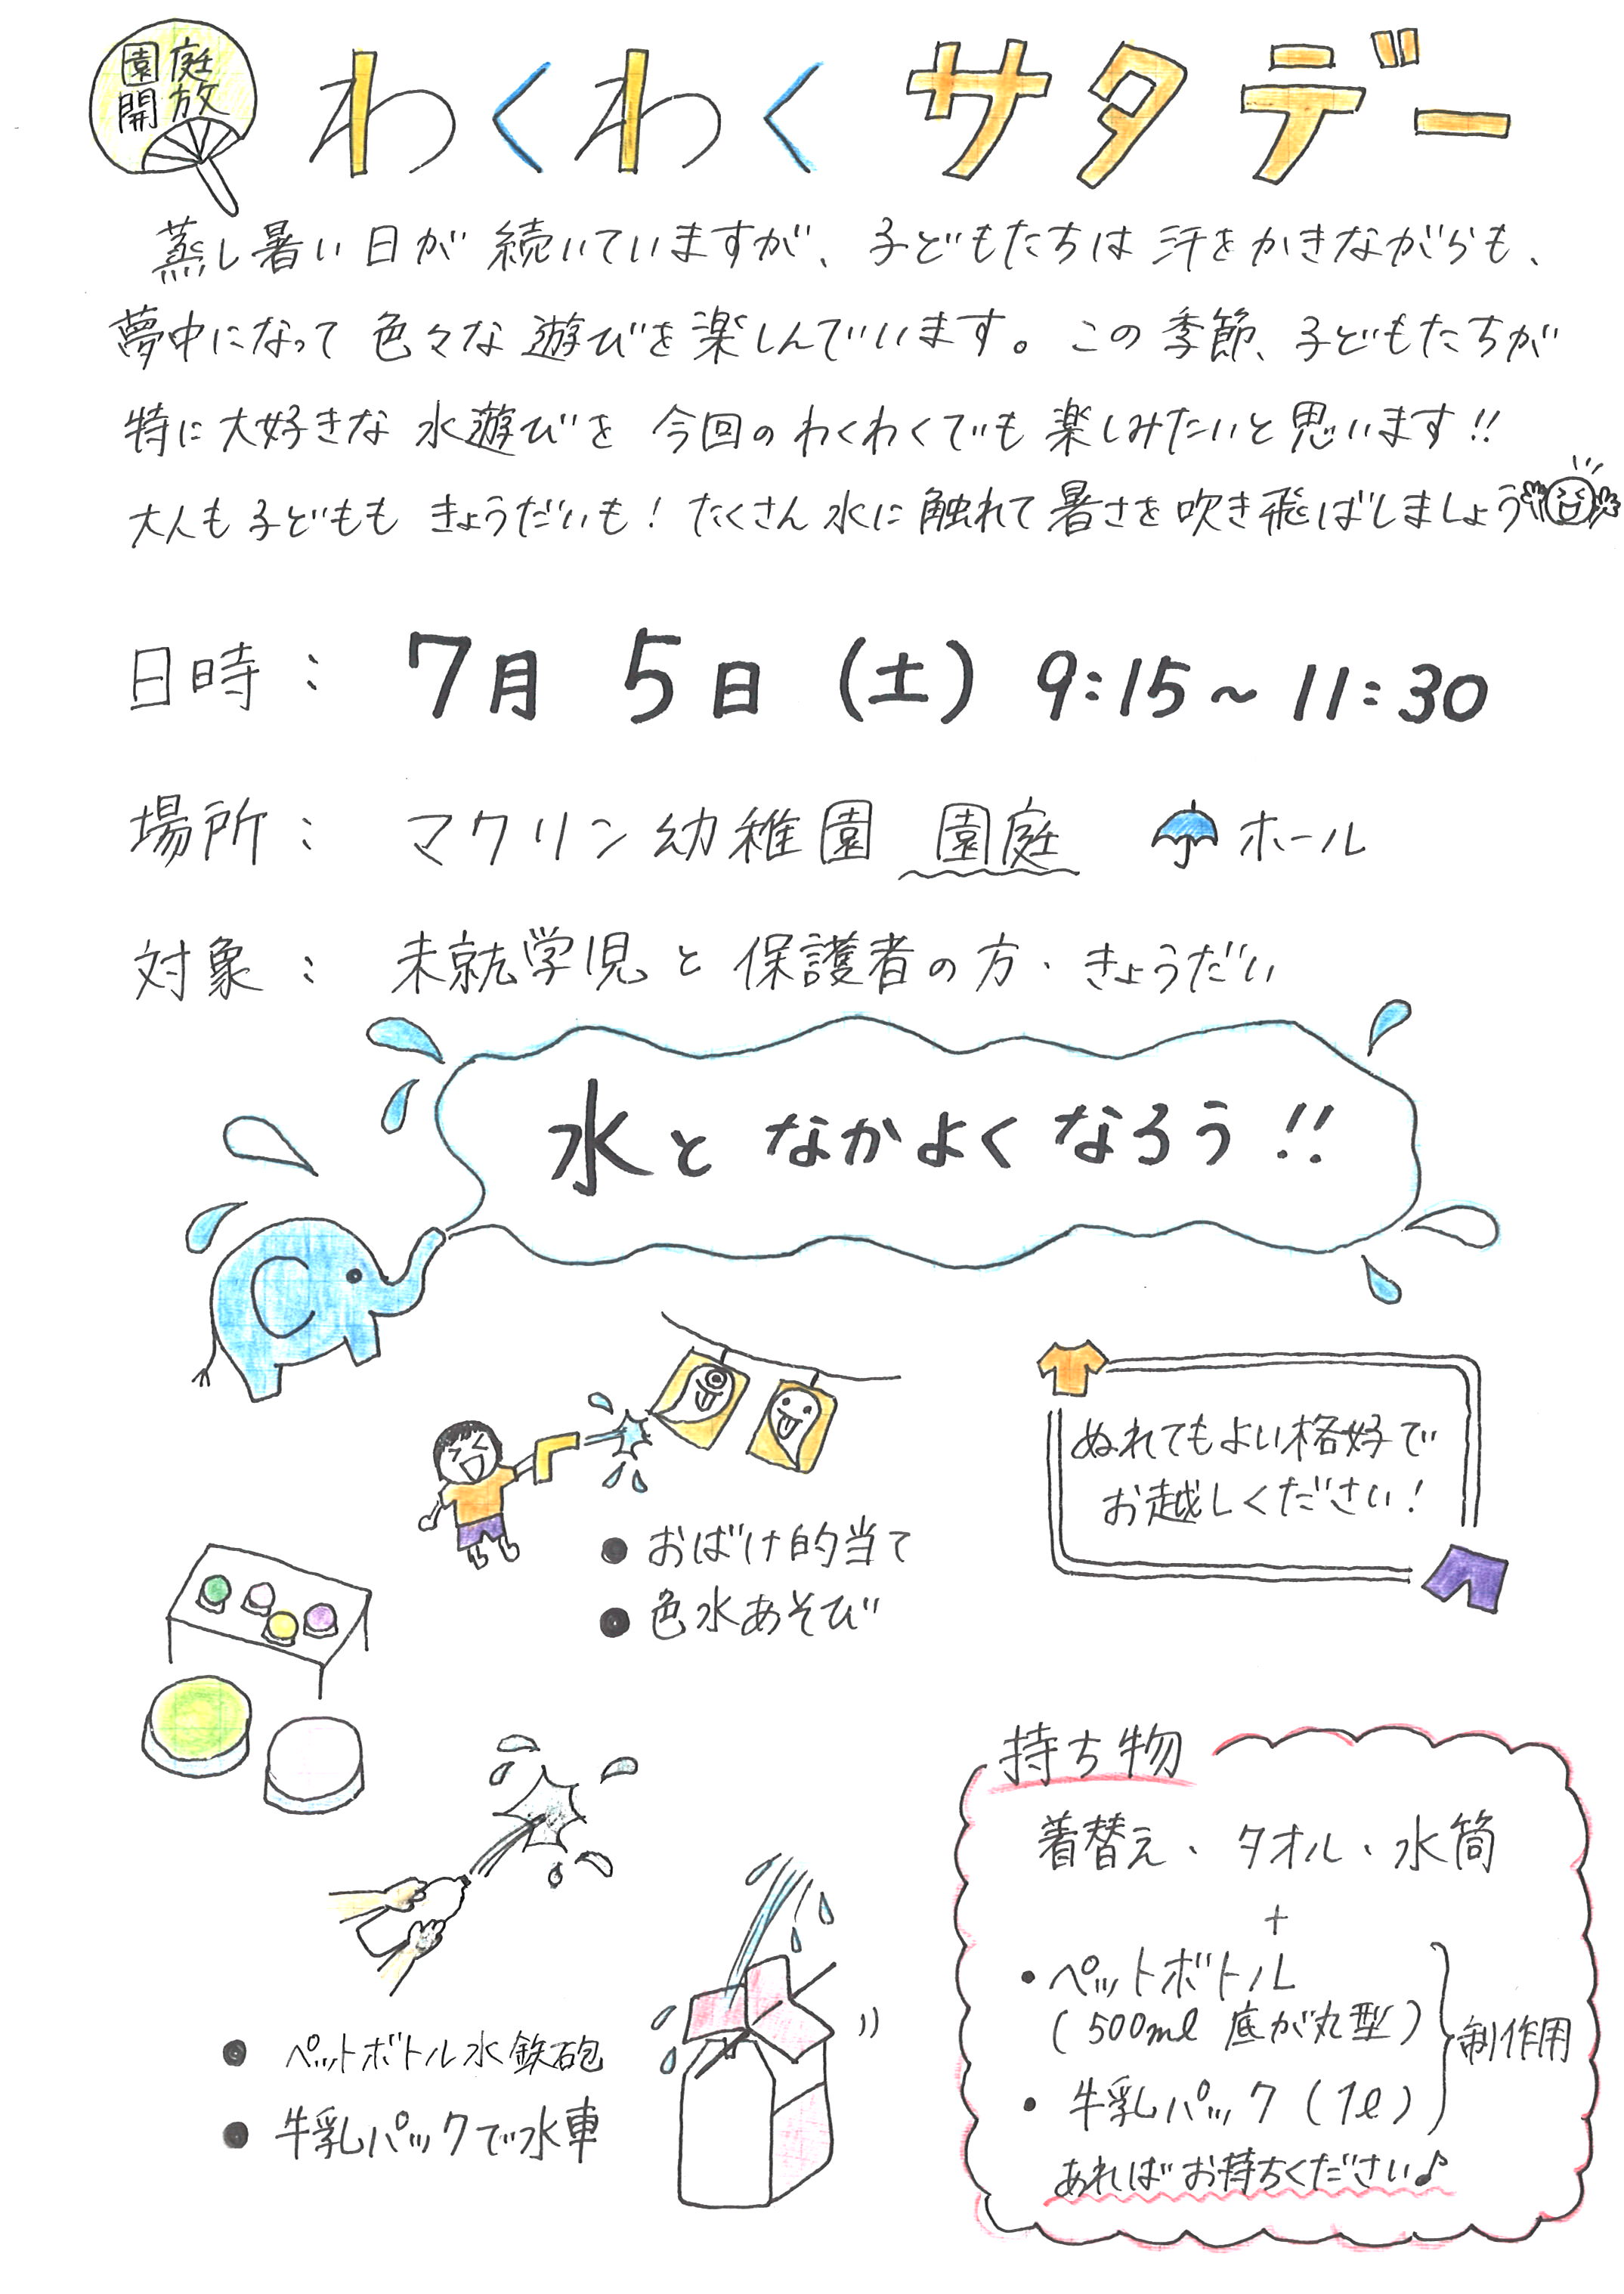 園庭
開放
わくわくサタデー
蒸し暑い日が続いていますが、子どもたちは汗をかきながらも、
夢中になって色々な遊びを楽しんでいます。この季節、子どもたちが
特に大好きな水遊びを今回のわくわくでも楽しみたいと思います!!
大人も子どももきょうだいも!たくさん水に触れて暑さを吹き飛ばしましょう
日時: 7月 5日 (土) 9:15~11:30
場所: マクリン幼稚園 園庭 ホール
対象: 未就学児と保護者の方・きょうだい
水となかよくなろう!!
ぬれてもよい格好で
お越しください!
●おばけ的当て
●色水あそび
持ち物
着替え、タオル・水筒
+
・ペットボトル
(500ml 底が丸型)
制作用
・牛乳パック(1ℓ)
あればお持ちください♪
● ペットボトル水鉄砲
● 牛乳パックで水車